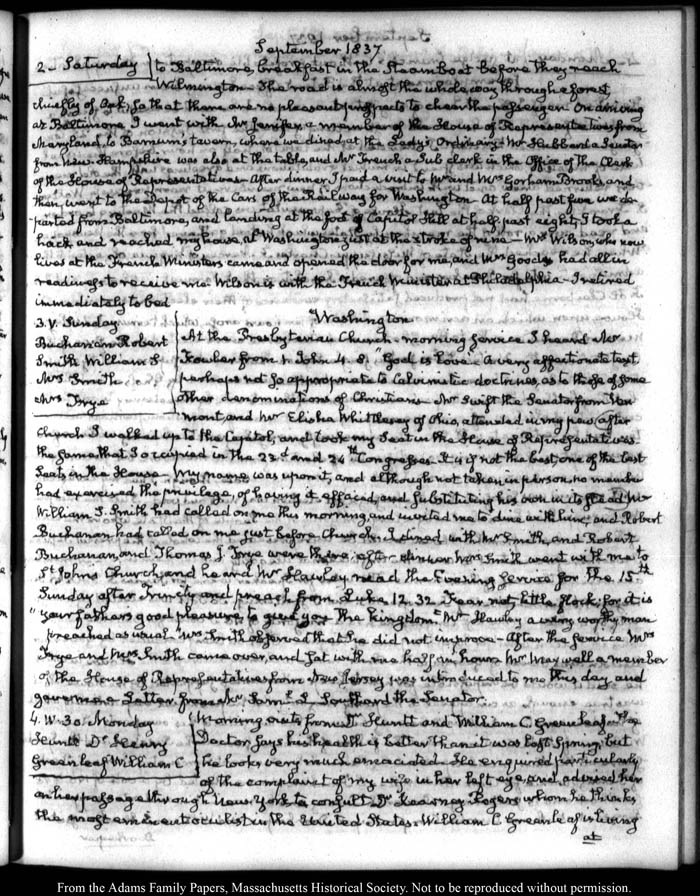 September 1837
2 - Saturday to Baltimore, breakfast in the Steamboat before they reach
Wilmington - The road is almost the whole way through forest,
chiefly of Oak; so that there are no pleasant prospects to cheer the passenger. On arriving
at Baltimore I went with Mr Jenifer, a member of the House of Representatives from
Maryland, to Barnum's tavern, where we dined, at the Lady's Ordinary. Mr Hubbard a Senator
from New-Hampshire was also at the table, and Mr French a Sub clerk in the Office of the Clerk
of the House of Representatives. After dinner I paid a visit to Mr and Mrs Gorham Brooks, and
then went to the depot of the Cars of the Railway for Washington. At half past five we de-
parted from Baltimore, and landing at the foot of Capitol Hill at half past eight, I took a
hack and reached my house, at Washington just at the stroke of nine - Mrs Wilson, who now
lives at the French Ministers came and opened the door for me, and Mrs Goods had all in
readiness to receive me. Wilson is with the French Minister at Philadelphia - I retired
immediately to bed
3. V. Sunday
Buchanan Robert
Smith William S
Mrs Smith
Mrs Frye
Washington
At the Presbyterian Church - morning service I heard Mr
Fowler from 1. John 4. 8. "God is love" A very affectionate text
perhaps not so appropriate to Calvinistic doctrines, as to those of some
other denominations of Christians. Mr Swift the Senator from Ver-
mont, and Mr Elisha Whittlesey of Ohio, attended in my pew. After
Church I walked up to the Capitol, and took my Seat in the House of Representatives
the same that I occupied in the 23d and 24th Congresses. It is if not the best, one of the best
Seats in the House - My name was upon it, and although not taken in person, no member
had exercised the privilege, of having it effaced, and substituting his own in its stead. Mr
William S. Smith had called on me this morning and invited me to dine with him, and Robert
Buchanan had called on me just before Church. I dined with Mr Smith, and Robert
Buchanan, and Thomas J. Frye were there. After dinner Mrs Smith went with me to
St Johns Church, and heard Mr Hawley read the Evening service for the 15th
Sunday after Trinity and preach from Luke 12. 32. Fear not, little flock; for it is
your father's good pleasure to give you the kingdom." Mr Hawley a very worthy man
preached as usual. Mrs Smith observed that he did not improve - After the service Mrs
Frye and Mrs Smith came over, and sat with me half an hour. Mr Maxwell a member
of the House of Representatives from New Jersey was introduced to me this day and
gave me a Letter from Mr Saml L. Southard the Senator.
4. IV. 30. Monday
Huntt Dr Henry
Greenleaf William C
Morning visits from Dr Huntt and William C Greenleaf. The
Doctor says his health is better than it was last Spring, but
he looks very much emaciated. He enquired particularly
of the complaint of my wife in her left eye, and advised her
on her passage through New-York to consult Dr Kearney Rogers whom he thinks
the most eminent oculist in the United States. William C. Greenleaf is living
at
From the Adams Family Papers, Massachusetts Historical Society. Not to be reproduced without permission.